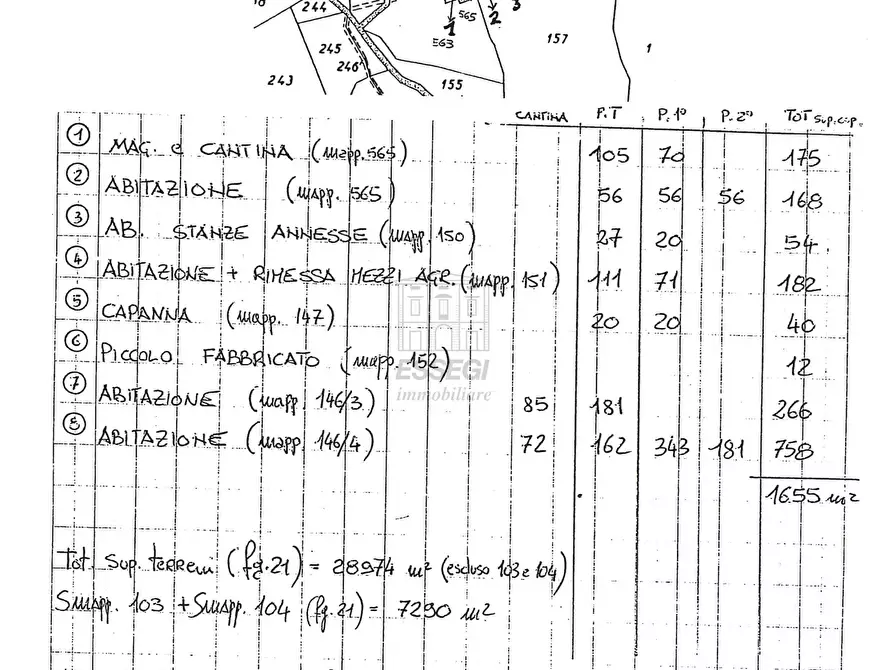 244
565
1
2
3
563
157
1
245
246
243
155
CANTINA P.T P.1° P.2° TOT sup. cop.
1 MAG. e CANTINA (mapp. 565) 105 70 175
2 ABITAZIONE (mapp. 565) 56 56 56 168
3 AB. STANZE ANNESSE (mapp. 150) 27 20 54
4 ABITAZIONE + RIMESSA MEZZI AGR. (mapp. 151) 111 71 182
5 CAPANNA (mapp. 147) 20 20 40
6 PICCOLO FABBRICATO (mapp. 152) 12
ESSEGI
immobiliare
7 ABITAZIONE (mapp. 146/3) 85 181 266
8 ABITAZIONE (mapp. 146/4) 72 162 343 181 758
1655 m²
Tot. Sup. terreni (fg. 21) = 28974 m² (escluso 103 e 104)
Smapp. 103 + Smapp. 104 (fg. 21) = 7290 m²